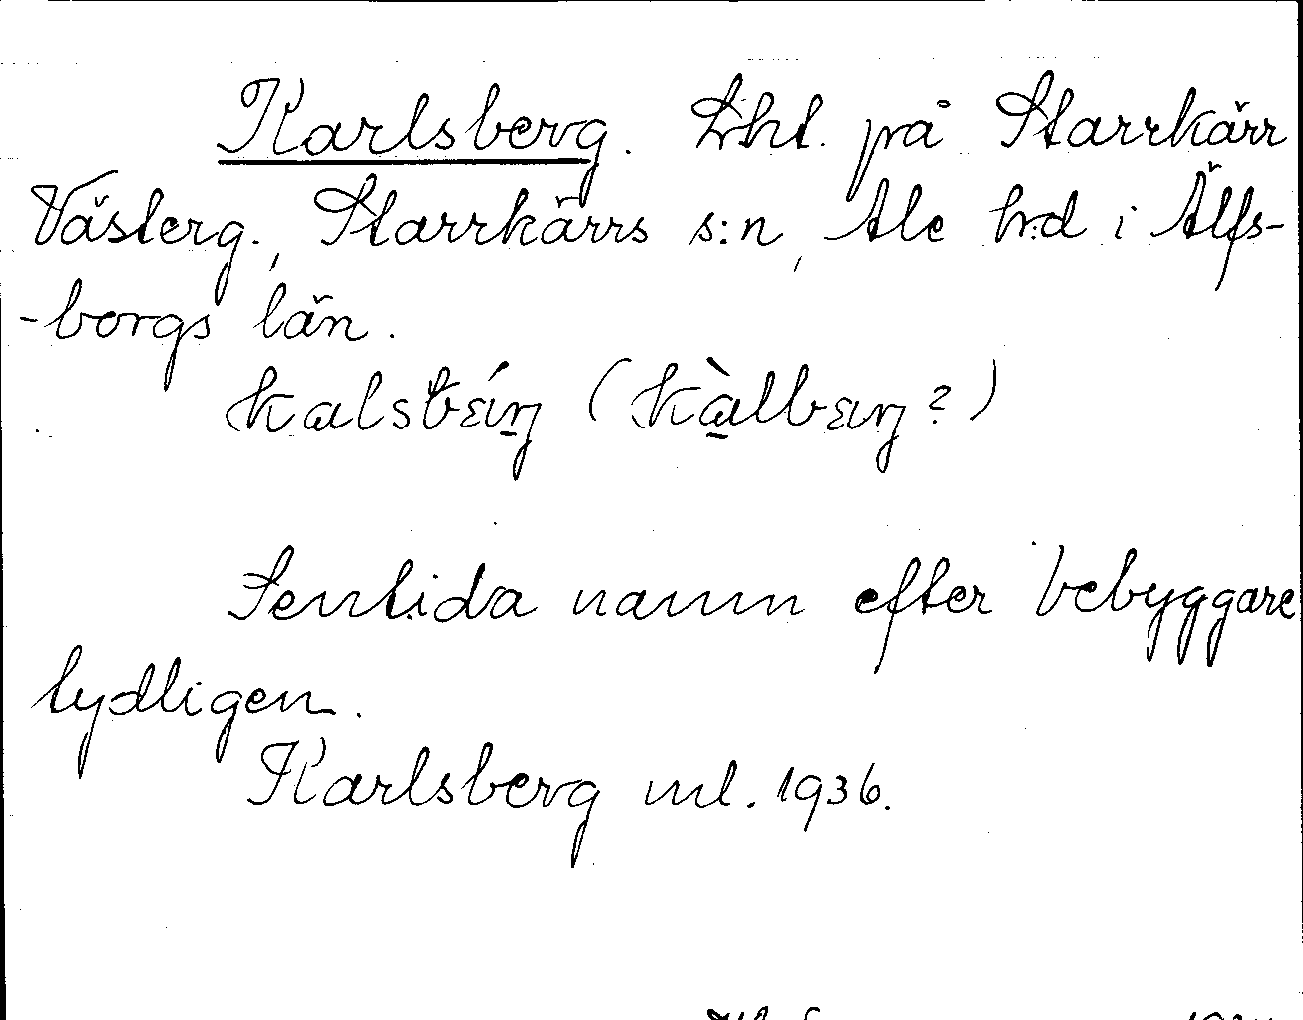 Karlsberg. Lht. på Starrkärr
Västerg., Starrkärrs s:n, Ale h:d i Älfs-
-borgs län.
kalsbɛ́rŋ (kàlbɛrŋ?)
Sentida namn efter bebyggare
tydligen.
Karlsberg ml. 1936.